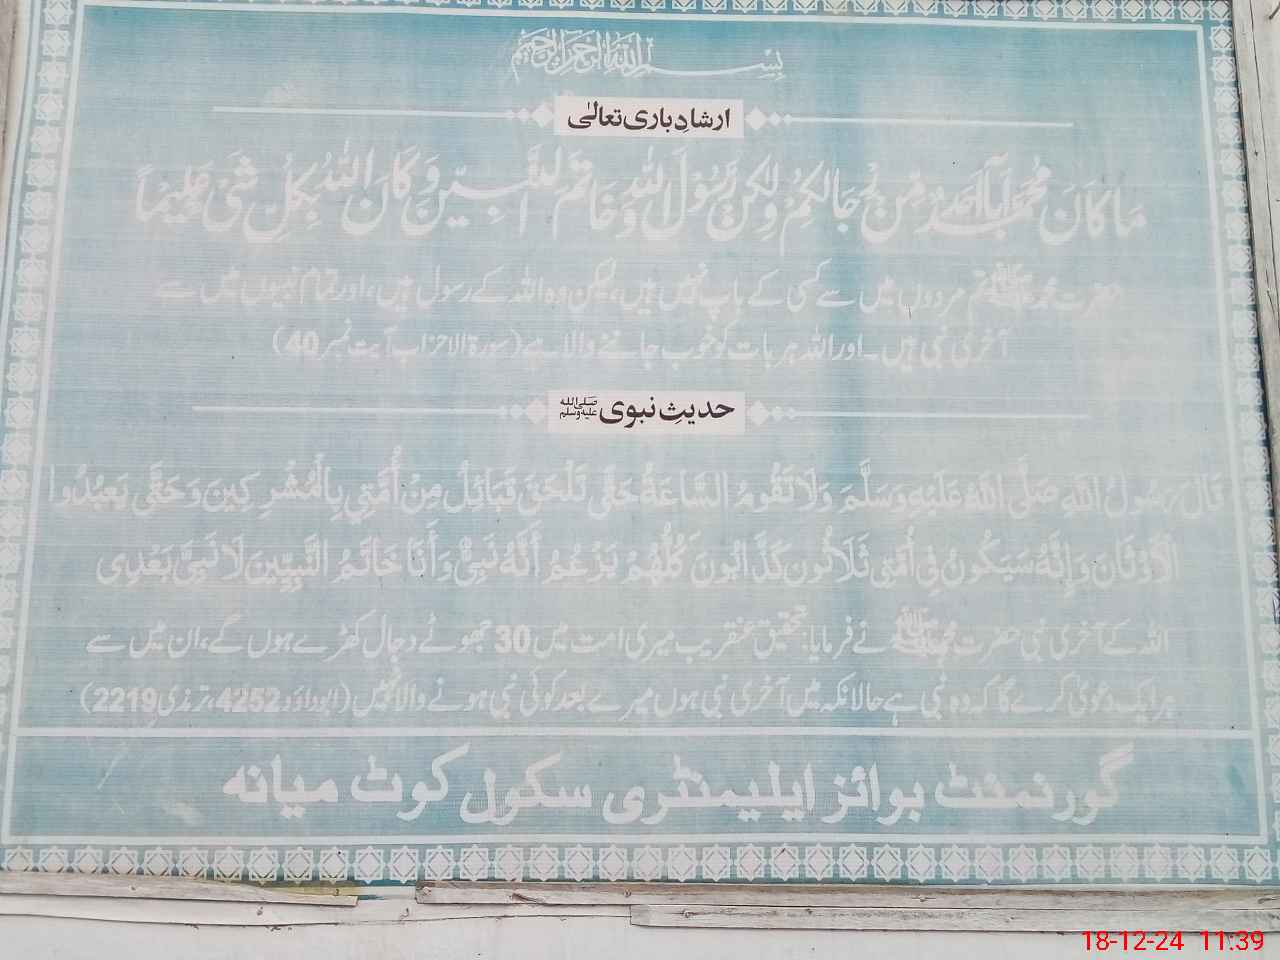 بِسْمِ اللهِ الرَّحْمٰنِ الرَّحِيْمِ
ارشادِ باری تعالیٰ
مَا كَانَ مُحَمَّدٌ اَبَآ اَحَدٍ مِّنْ رِّجَالِكُمْ وَلٰكِنْ رَّسُوْلَ اللهِ وَخَاتَمَ النَّبِيّٖنَ وَكَانَ اللهُ بِكُلِّ شَیْءٍ عَلِيْمًا
حضرت محمد ﷺ تم مردوں میں سے کسی کے باپ نہیں ہیں، لیکن وہ اللہ کے رسول ہیں، اور تمام نبیوں میں سے
آخری نبی ہیں۔ اور اللہ ہر بات کو خوب جاننے والا ہے (سورۃ الاحزاب آیت نمبر 40)
حدیثِ نبوی ﷺ
قَالَ رَسُولُ اللهِ صَلَّى اللهُ عَلَيْهِ وَسَلَّمَ وَلَا تَقُومُ السَّاعَةُ حَتَّى تَلْحَقَ قَبَائِلُ مِنْ أُمَّتِي بِالْمُشْرِكِينَ وَحَتَّى يَعْبُدُوا
الْأَوْثَانَ وَإِنَّهُ سَيَكُونُ فِي أُمَّتِي ثَلَاثُونَ كَذَّابُونَ كُلُّهُمْ يَزْعُمُ أَنَّهُ نَبِيٌّ وَأَنَا خَاتَمُ النَّبِيِّينَ لَا نَبِيَّ بَعْدِي
اللہ کے آخری نبی حضرت محمد ﷺ نے فرمایا: تحقیق عنقریب میری امت میں 30 جھوٹے دجال کھڑے ہوں گے، ان میں سے
ہر ایک دعویٰ کرے گا کہ وہ نبی ہے حالانکہ میں آخری نبی ہوں میرے بعد کوئی نبی ہونے والا نہیں (ابوداؤد 4252، ترمذی 2219)
گورنمنٹ بوائز ایلیمنٹری سکول کوٹ میانہ
18-12-24 11:39